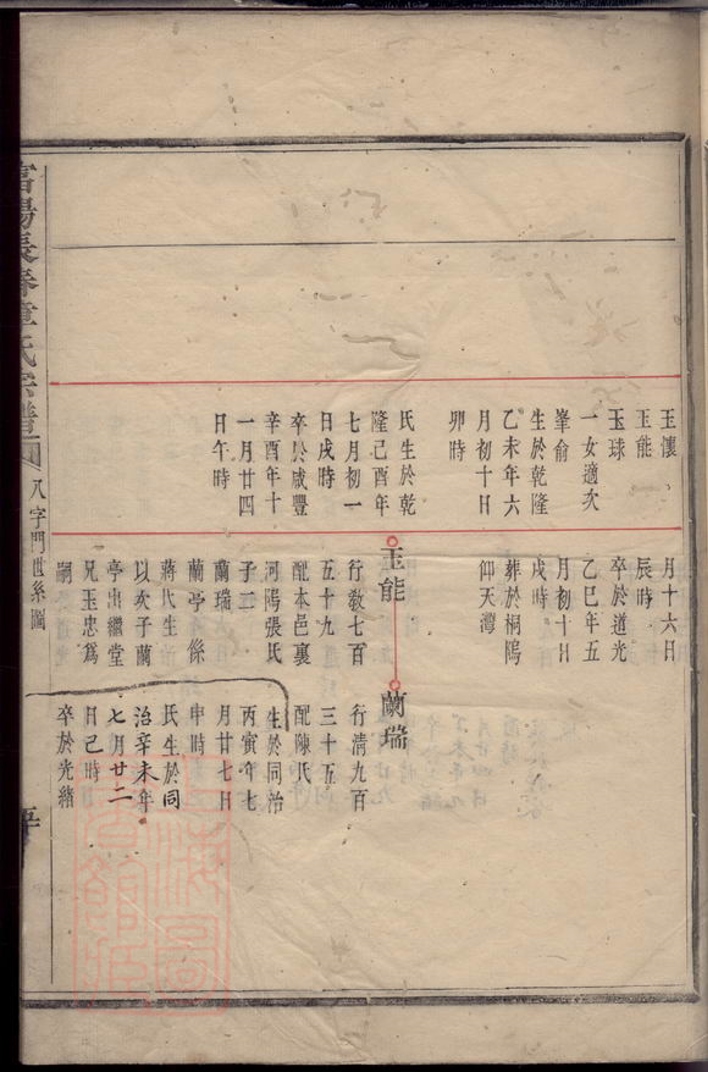 玉瀼
玉能
玉球
一女適次
峯俞
生於乾隆
乙未年六
月初十日
卯時
氏生於乾
隆己酉年
七月初一
日戌時
卒於咸豐
辛酉年十
一月廿四
日午時
月十六日
辰時
卒於道光
乙巳年五
月初十日
戌時
葬於桐隖
仰天灣
玉能
行敎七百
五十九
配本邑裏
河隖張氏
子二
蘭瑞
蘭亭 係
蔣氏生
以次子蘭
亭出繼堂
兄玉忠爲
嗣
蘭瑞
行清九百
三十五
配陳氏
生於同治
丙寅年七
月廿七日
申時
氏生於同
治辛未年
七月廿二
日巳時
卒於光緒
富陽長春章氏宗譜
八字門世系圖